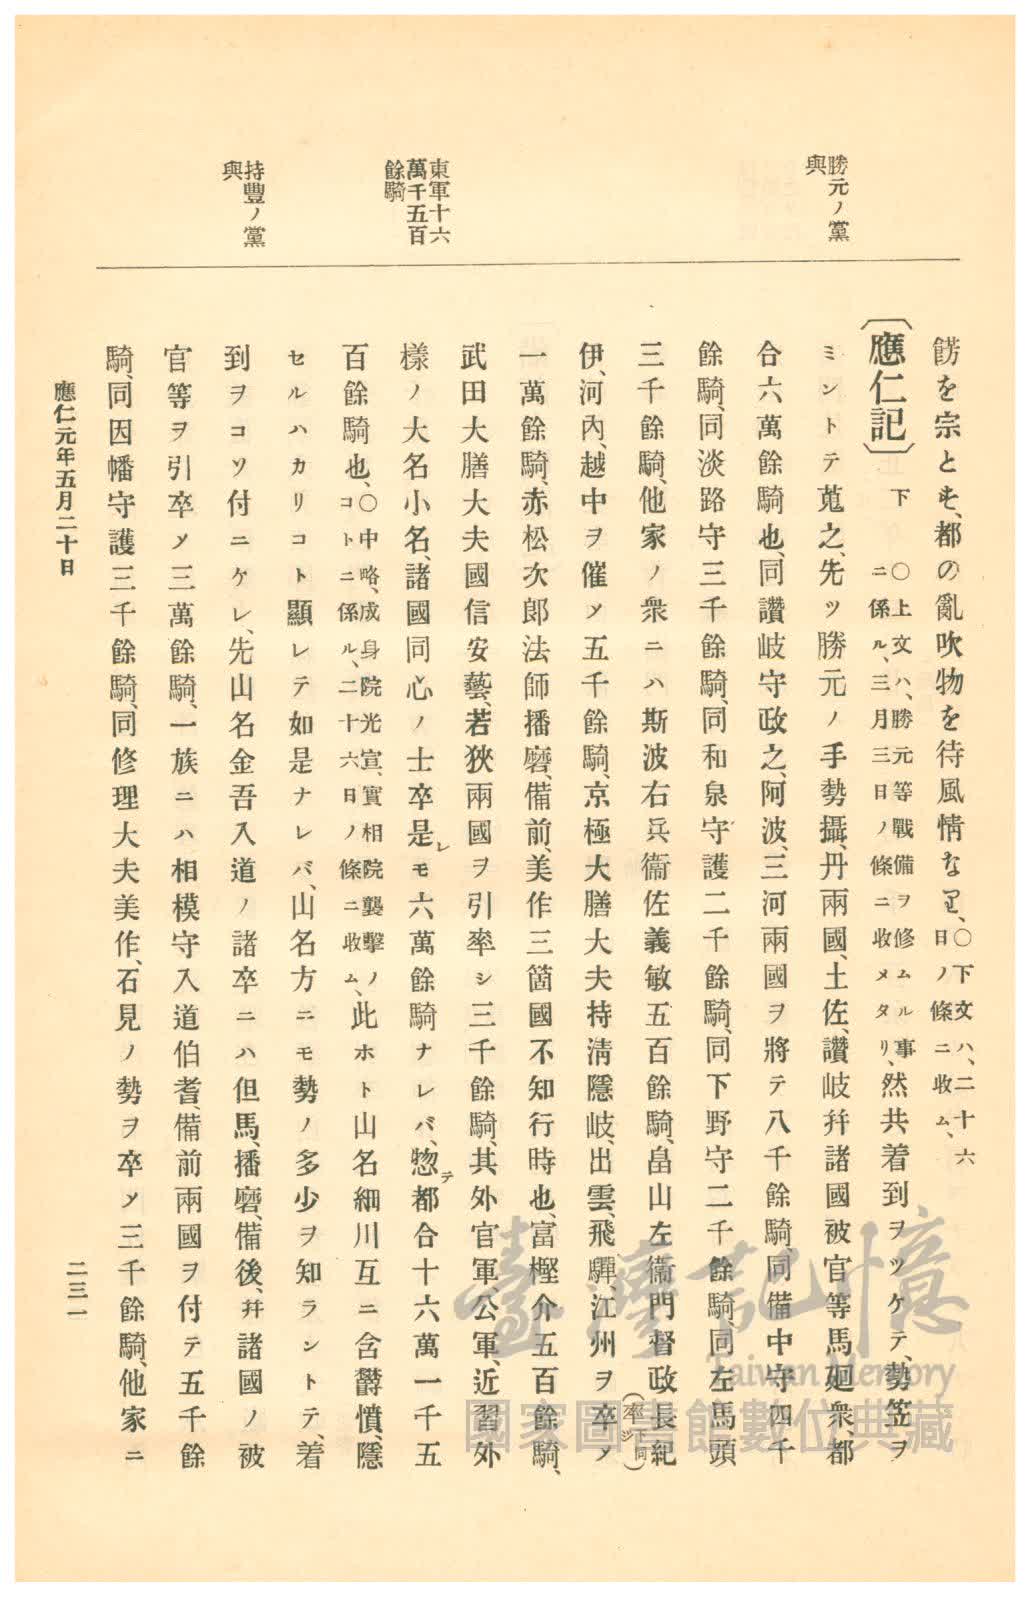 勝元ノ黨
與
東軍十六
萬千五百
餘騎
持豐ノ黨
與
餝を宗とセ、都の亂吹物を待風情なり、〇下文ハ、二十六日ノ條ニ收ム、
〔應仁記〕下 〇上文ハ、勝元等戰備ヲ修ムル事ニ係ル、三月三日ノ條ニ收メタリ、然共着到ヲツケテ、勢笠ヲ
ミントテ蒐之、先ツ勝元ノ手勢攝、丹兩國、土佐、讚岐幷諸國被官等馬廻衆、都
合六萬餘騎也、同讚岐守政之、阿波、三河兩國ヲ將テ八千餘騎、同備中守四千
餘騎、同淡路守三千餘騎、同和泉守護二千餘騎、同下野守二千餘騎、同左馬頭
三千餘騎、他家ノ衆ニハ斯波右兵衞佐義敏五百餘騎、畠山左衞門督政長紀
伊、河內、越中ヲ催メ五千餘騎、京極大膳大夫持淸隱岐、出雲、飛驒、江州ヲ卒(率下同ジ)メ
一萬餘騎、赤松次郎法師播磨、備前、美作三箇國不知行時也、富樫介五百餘騎、
武田大膳大夫國信安藝、若狹兩國ヲ引率シ三千餘騎、其外官軍、公軍、近習外
樣ノ大名小名、諸國同心ノ士卒是レモ六萬餘騎ナレバ、惣テ都合十六萬一千五
百餘騎也、〇中略、成身院光宣、實相院襲擊ノコトニ係ル、二十六日ノ條ニ收ム、此ホト山名細川互ニ含欝憤、隱
セルハカリコト顯レテ如是ナレバ、山名方ニモ勢ノ多少ヲ知ラントテ、着
到ヲコソ付ニケレ、先山名金吾入道ノ諸卒ニハ但馬、播磨、備後、幷諸國ノ被
官等ヲ引卒メ三萬餘騎、一族ニハ相模守入道伯耆、備前兩國ヲ付テ五千餘
騎、同因幡守護三千餘騎、同修理大夫美作、石見ノ勢ヲ卒メ三千餘騎、他家ニ
應仁元年五月二十日
二三一
臺灣記憶
Taiwan Memory
國家圖書館數位典藏